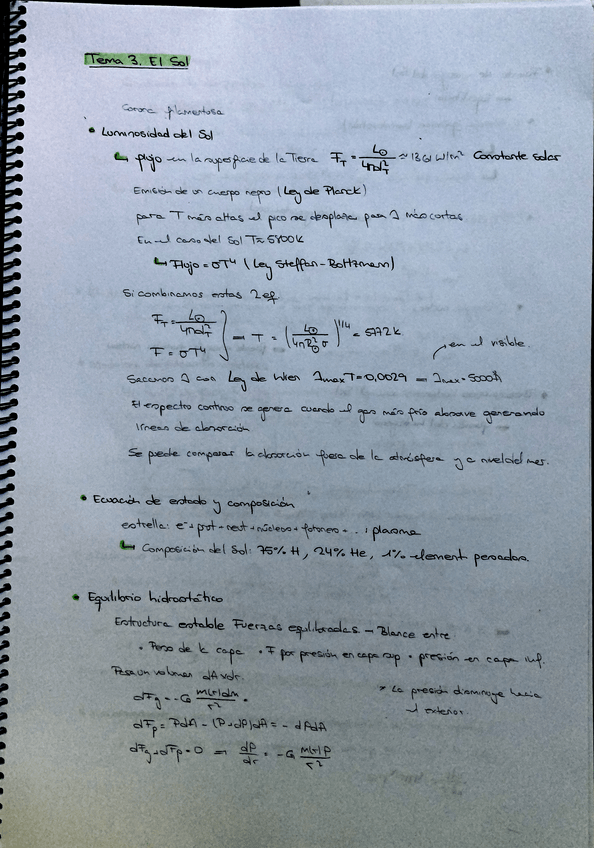 Tema 3. El Sol
Corona filamentosa
• Luminosidad del Sol
↳ flujo en la superficie de la Tierra F_T = L⊙/4πd²_T ≈ 1361 W/m² Constante solar
Emisión de un cuerpo negro (Ley de Planck)
para T más altas el pico se desplaza para λ más cortas
En el caso del Sol T≈5800K
↳ Flujo = σT⁴ (Ley Steffan-Boltzmann)
Si combinamos estas 2 eq.
F_T = L⊙/4πd²_T
F = σT⁴
} → T = (L⊙/4πR²⊙σ)^1/4 = 5772 K
en el visible.
Sacamos λ con Ley de Wien λmax T = 0,0029 → λmax = 5000Å
El espectro continuo se genera cuando el gas más frío absorve generando
líneas de absorción
Se puede comparar la absorción fuera de la atmósfera y a nivel del mar.
• Ecuación de estado y composición
estrella: e⁻ + prot + neut + núcleos + fotones + ... : plasma
↳ Composición del Sol: 75% H, 24% He, 1% element pesados.
• Equilibrio hidrostático
Estructura estable Fuerzas equilibradas → Blance entre
• Peso de la capa • F por presión en capa sup • presión en capa inf.
Para un volumen dA·dr.
dFg = -G m(r)dm/r²
> La presión disminuye hacia
el exterior.
dFp = PdA - (P+dP)dA = - dPdA
dFg + dFp = 0 → dP/dr = -G m(r)ρ/r²